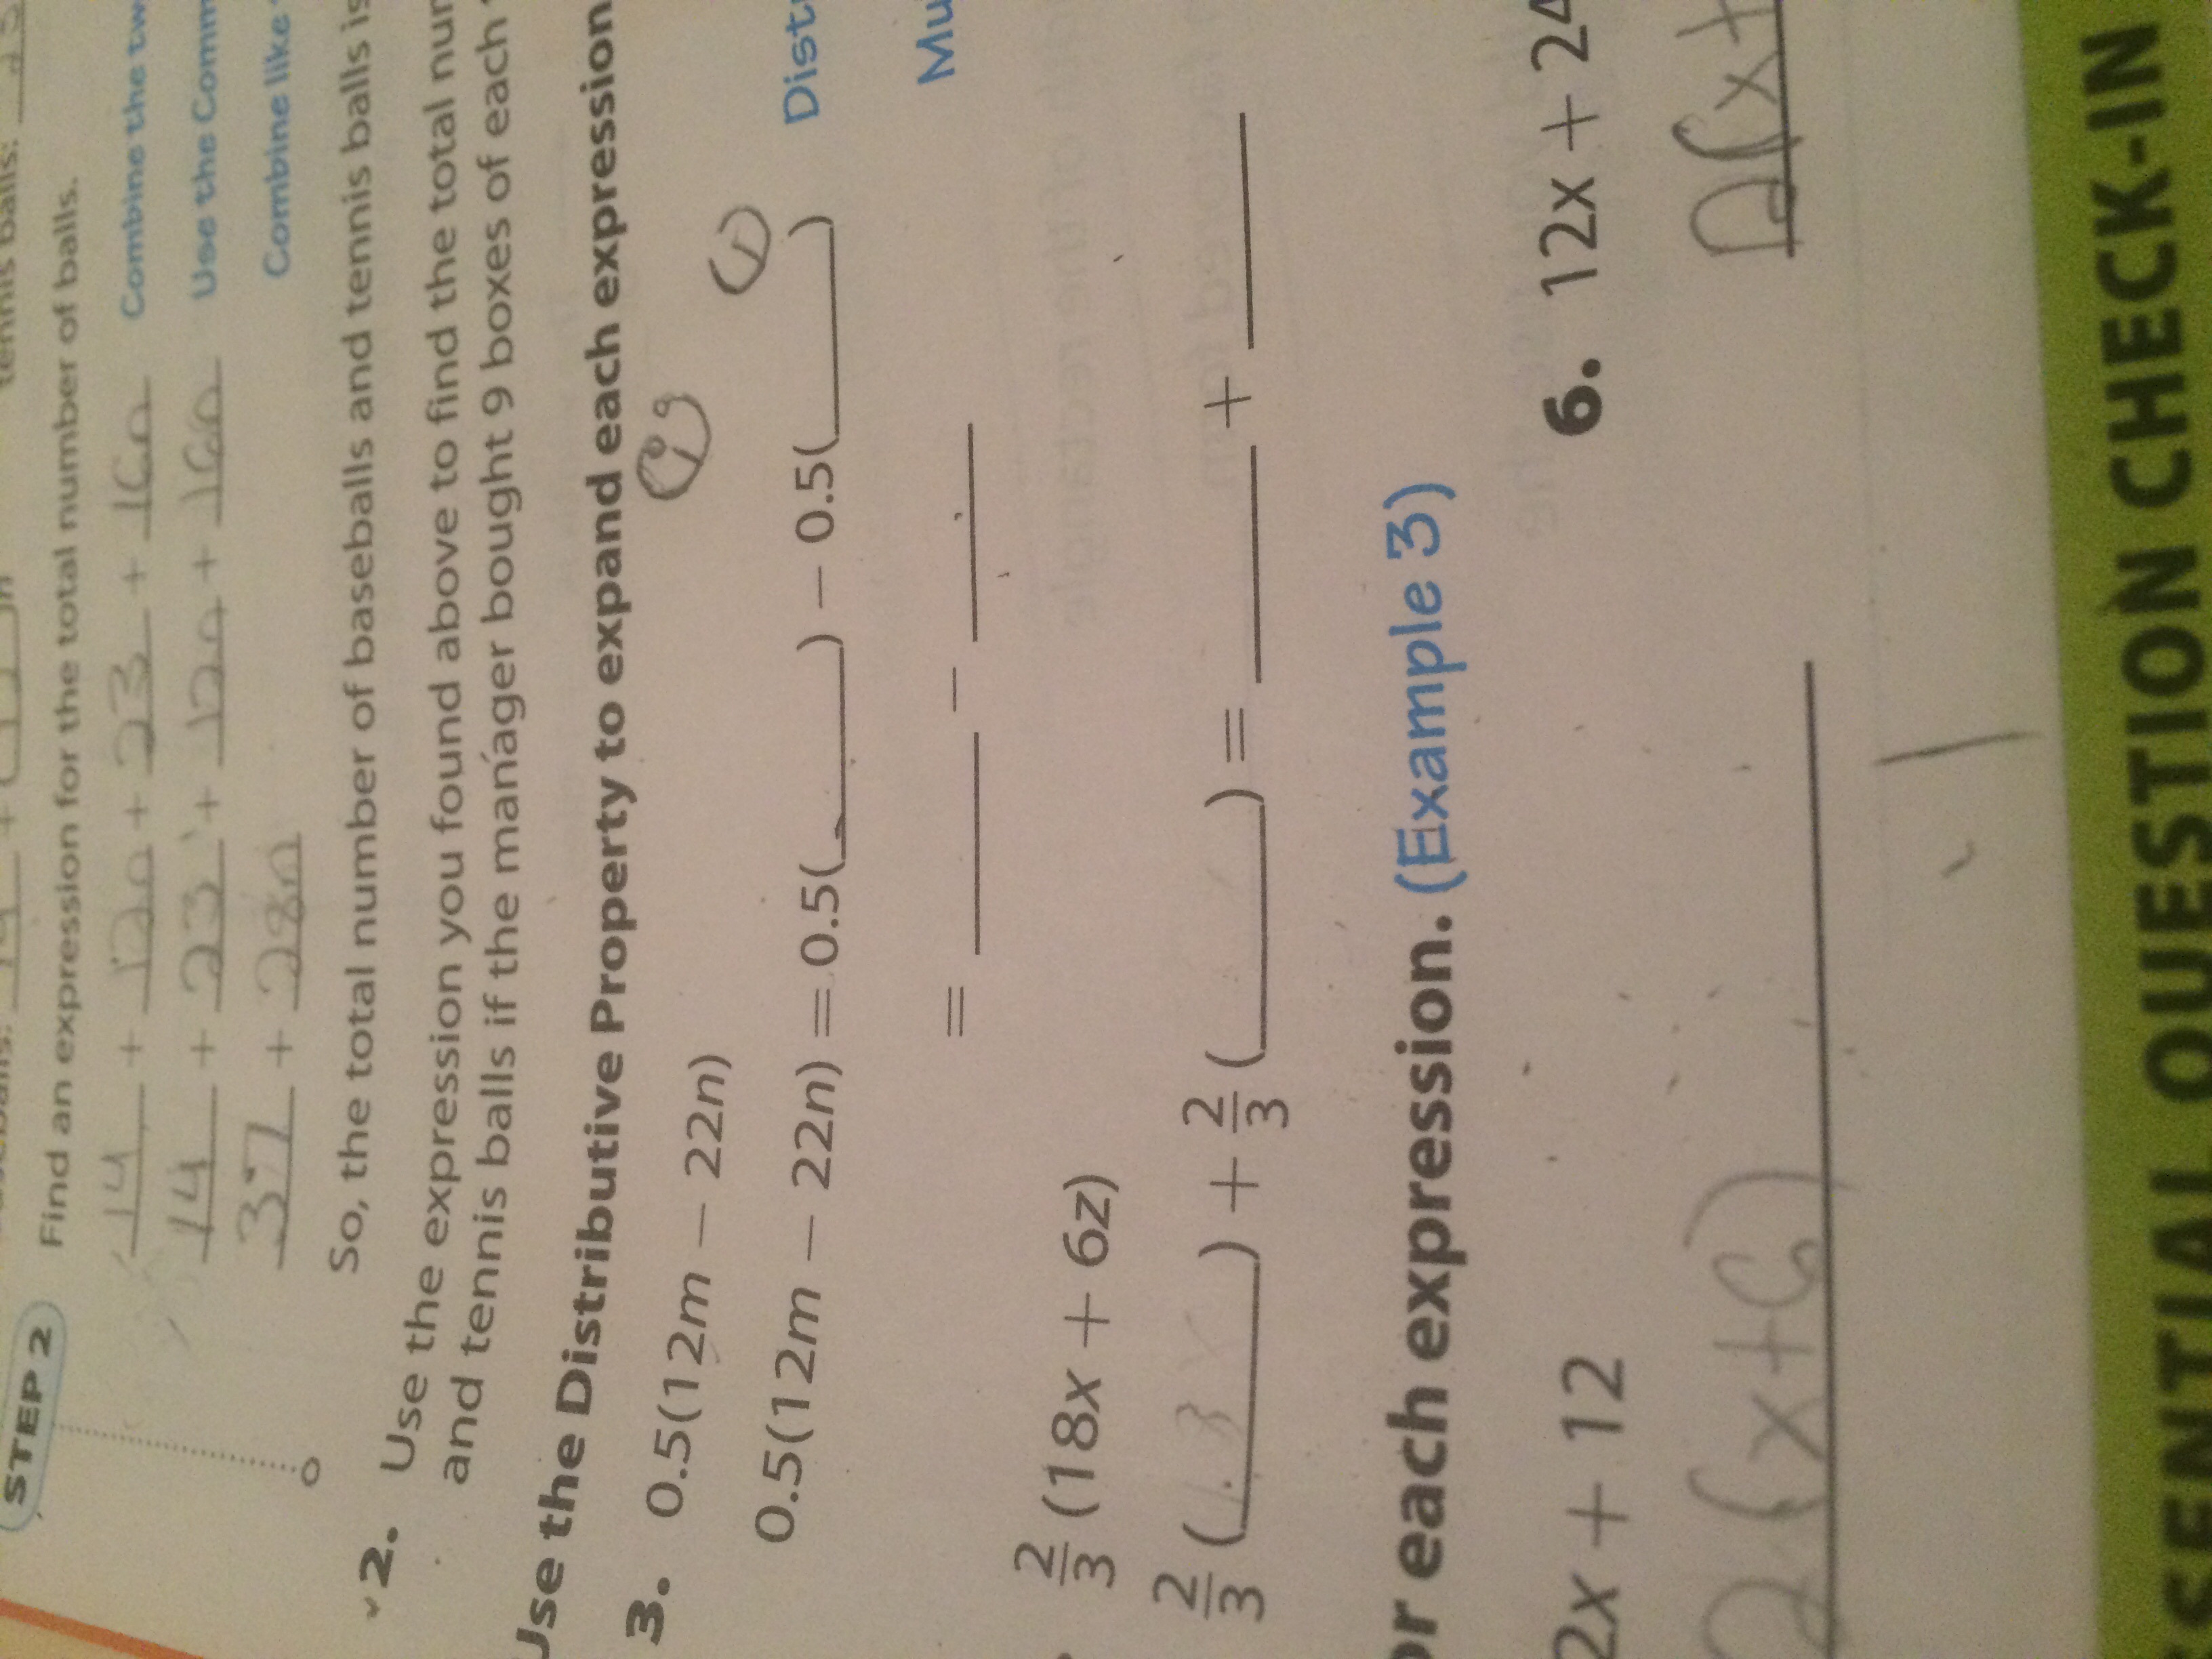 tennis balls:
STEP 2
Find an expression for the total number of balls.
14 + 12n + 23 + 16n Combine the
14 + 23 + 12n + 16n Use the
37 + 28n Combine like
So, the total number of baseballs and tennis balls is
2. Use the expression you found above to find the total
and tennis balls if the manager bought 9 boxes of each
Use the Distributive Property to expand each expression
3. 0.5(12m − 22n)
0.5(12m − 22n) = 0.5(____) − 0.5(____)
= ____ − ____
2/3 (18x + 6z)
2/3 (____) + 2/3 (____) = ____ + ____
each expression. (Example 3)
2x + 12
2(x+6)
6. 12x + 24
QUESTION CHECK-IN